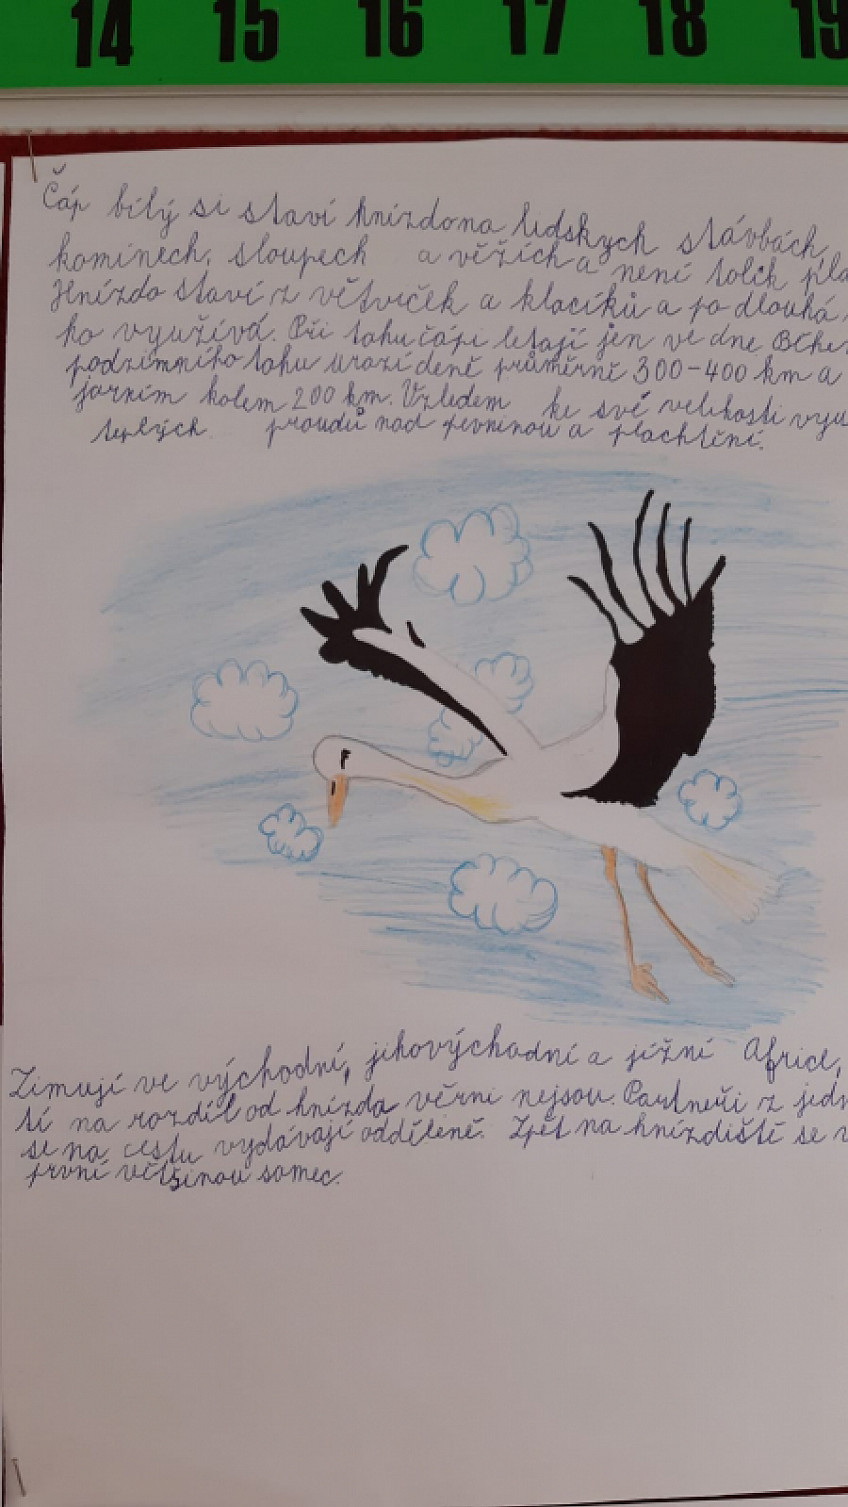 14 15 16 17 18 19
Čáp bílý si staví hnízdona lidskych stávbách,
komínech, sloupech a věžích a není tolik pla
Hnízdo staví z větviček a klacíků a po dlouhá
ho využívá. Při tahu čápi letají jen ve dne Běhe
podzimního tahu urazí deně průměrně 300-400 km a
jarním kolem 200 km. Vzledem ke své velikosti vyu
teplých proudů nad pevninou a plachtění.
Zimují ve východní, jihovýchodní a jížní Africe,
tí na rozdíl od hnízda věrni nejsou. Partneři z jedn
se na cestu vydávají odděleně. Zpět na hnízdiště se v
první většinou samec.